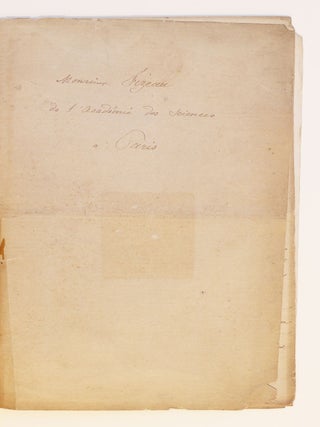 Monsieur
de l'Académie des Sciences
a Paris